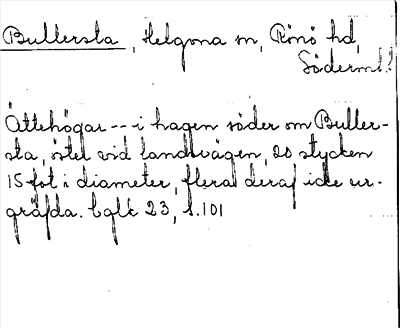 Bullersta, Helgona sn, Rönö hd,
Söderml.
Ättehögar --- i hagen söder om Buller-
sta, öster vid landsvägen, 20 stycken
15 fot i diameter, flera deraf icke ur-
gräfda. Eglk 23, s. 101